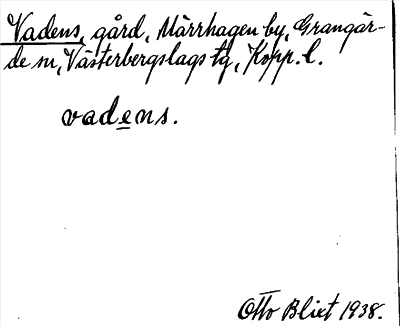 Vadens, gård, Märrhagen by, Grangär-
de sn, Västerbergslags tg, Kopp. l.
vadens.
Otto Blixt 1938.